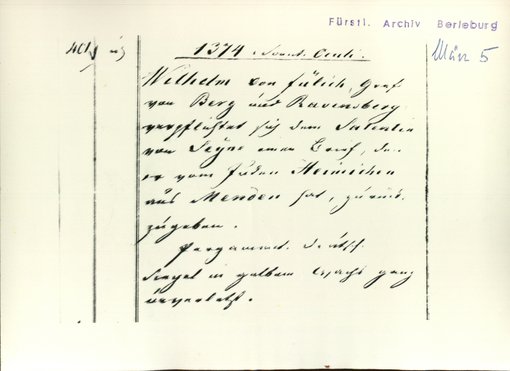 Fürstl. Archiv Berleburg
März 5
401
1374
Wilhelm von Jülich, Graf
von Berg und Ravensberg
verpflichtet sich dem Salentin
von Seyne einen Brief, den
er vom Juden Heimichen
aus Menden hat, zurück
zugeben.
Pergament. deutsch.
Siegel in gelbem Wachs ganz
unverletzt.